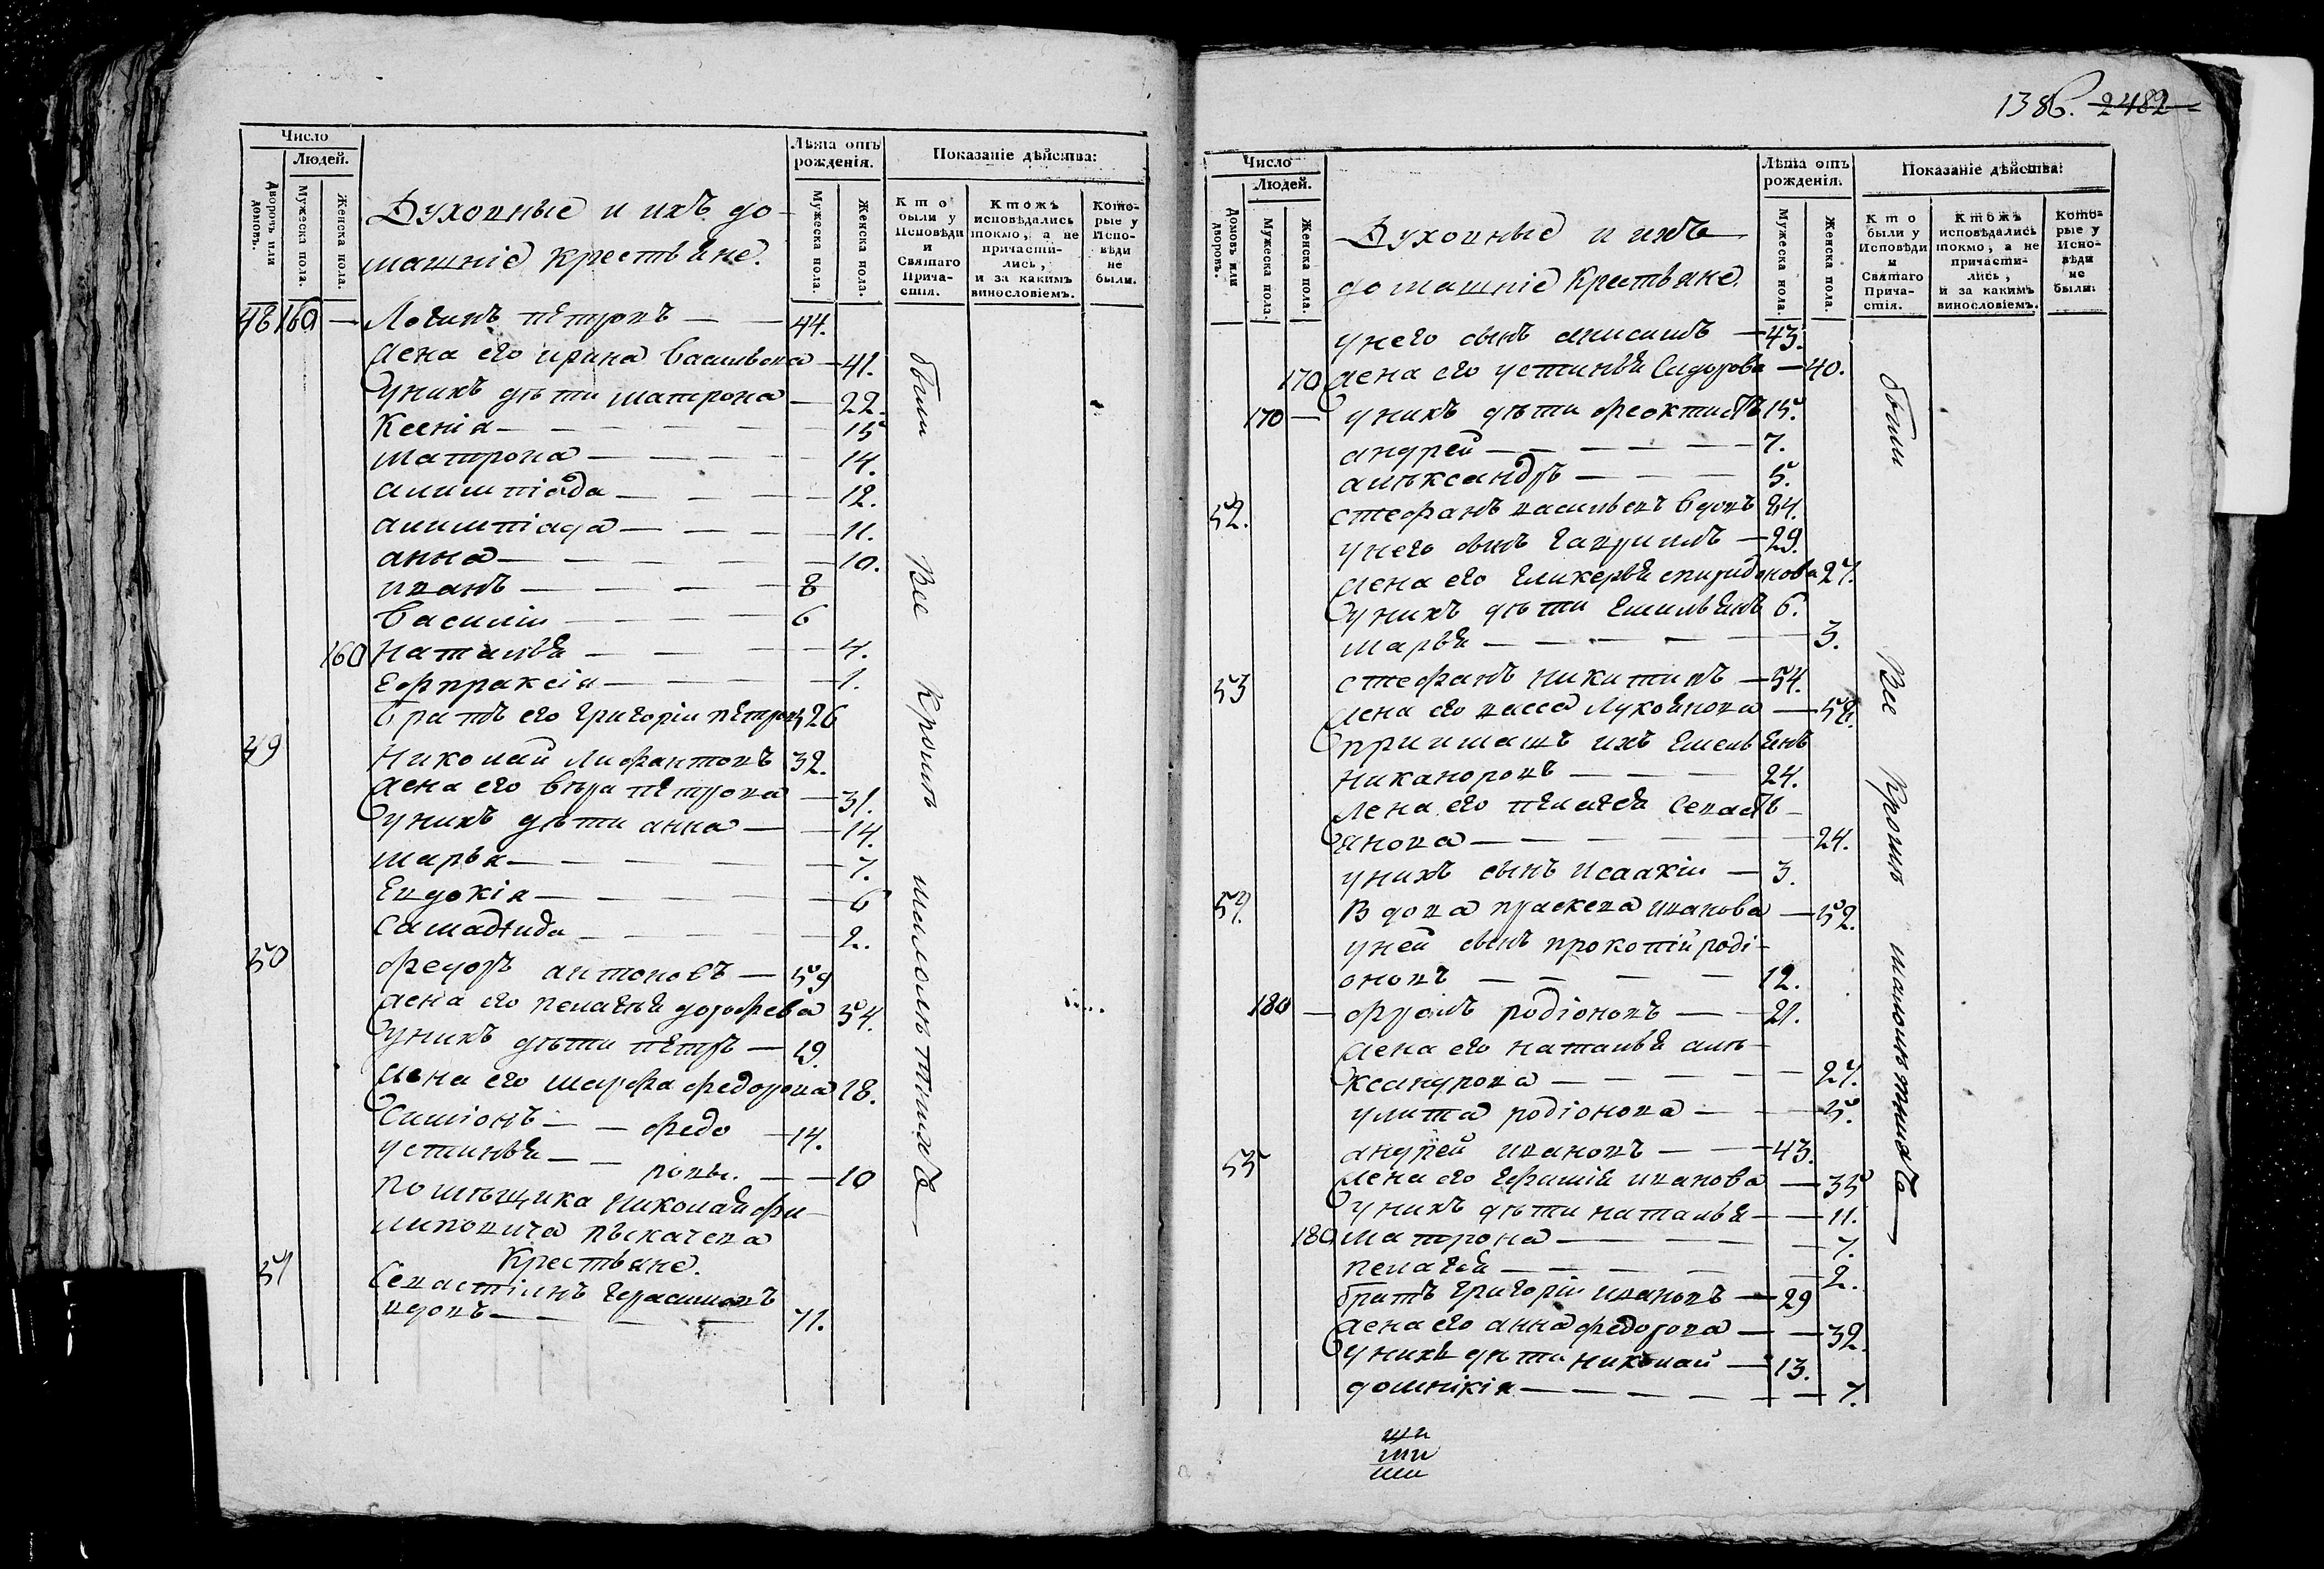 Число
Людей.
Дворовъ или домовъ.
Мужеска пола.
Женска пола.
Лѣта отъ рожденія.
Мужеска пола.
Женска пола.
Показаніе дѣйства:
Кто были у Исповѣди и Святаго Причастія.
Ктожъ исповѣдались токмо, а не причастились, и за какимъ винословіемъ.
Которые у Исповѣди не были.
Духовные и ихъ до-
машніе крестьяне.
48 160 — Логинъ петровъ — 44.
Жена его ирина васильева — 41.
Унихъ дѣти матрона — 22.
Ксенія — 15
матрона — 14.
алимпіада — 12.
алимпіада — 11.
анна — 10.
иванъ — 8
василій — 6
160 наталья — 4.
Еѳпраксія — 1.
братъ его григорій петровъ 26
49 Николай Лиѳантовъ 32.
Жена его вѣра петрова — 31.
Унихъ дѣти анна — 14.
марья — 7.
Евдокія — 6
2.
50 Федоръ антоновъ — 59
Жена его пелагея дорофеева 54.
Унихъ дѣти петръ — 19.
Жена его марфа федорова 18.
Симіонъ — федо — 14.
устинья — ровы. — 10
помѣщика Николая фи-
липовича
Крестьяне.
51 Севастіянъ герасимовъ
вдовъ — 71.
были Все Кромѣ малолѣтнихъ —
138б. 2482
Число
Людей.
Домовъ или дворовъ.
Мужеска пола.
Женска пола.
Лѣта отъ рожденія.
Мужеска пола.
Женска пола.
Показаніе дѣйства:
Кто были у Исповѣди и Святаго Причастія.
Ктожъ исповѣдались токмо, а не причастились, и за какимъ винословіемъ.
Которые у Исповѣди не были.
Духовные и ихъ
домашніе крестьяне.
унего сынъ анисимъ — 43.
170 Жена его устинья Сидорова — 40.
170 — унихъ дѣти феоктистъ 15.
андрей — 7.
александръ — 5.
52. стефанъ васильевъ вдовъ 84.
унего сынъ гаврилъ — 29.
Жена его гликерья спиридонова 27.
унихъ дѣти Емельянъ 6.
марья — 3.
53 стефанъ никитинъ — 54.
Жена его васса Лукоянова — 58.
приимашъ ихъ Емельянъ
никаноровъ — 24.
Жена его пелагея Севасть-
янова — 24.
унихъ сынъ исаакій — 3.
54. Вдова праскева иванова — 52.
уней сынъ прокопій роді-
оновъ — 12.
180 — фролъ родіоновъ — 21.
Жена его наталья але-
ксандрова — 27.
улита родіонова — 5.
55 андрей ивановъ — 43.
Жена его Ефимія иванова — 35
унихъ дѣти наталья — 11.
180 матрона — 7.
пелагея — 2.
братъ григорій ивановъ — 29
Жена его анна федорова — 32.
унихъ дѣти николай — 13.
домнікія — 7.
были Все Кромѣ малолѣтнихъ —